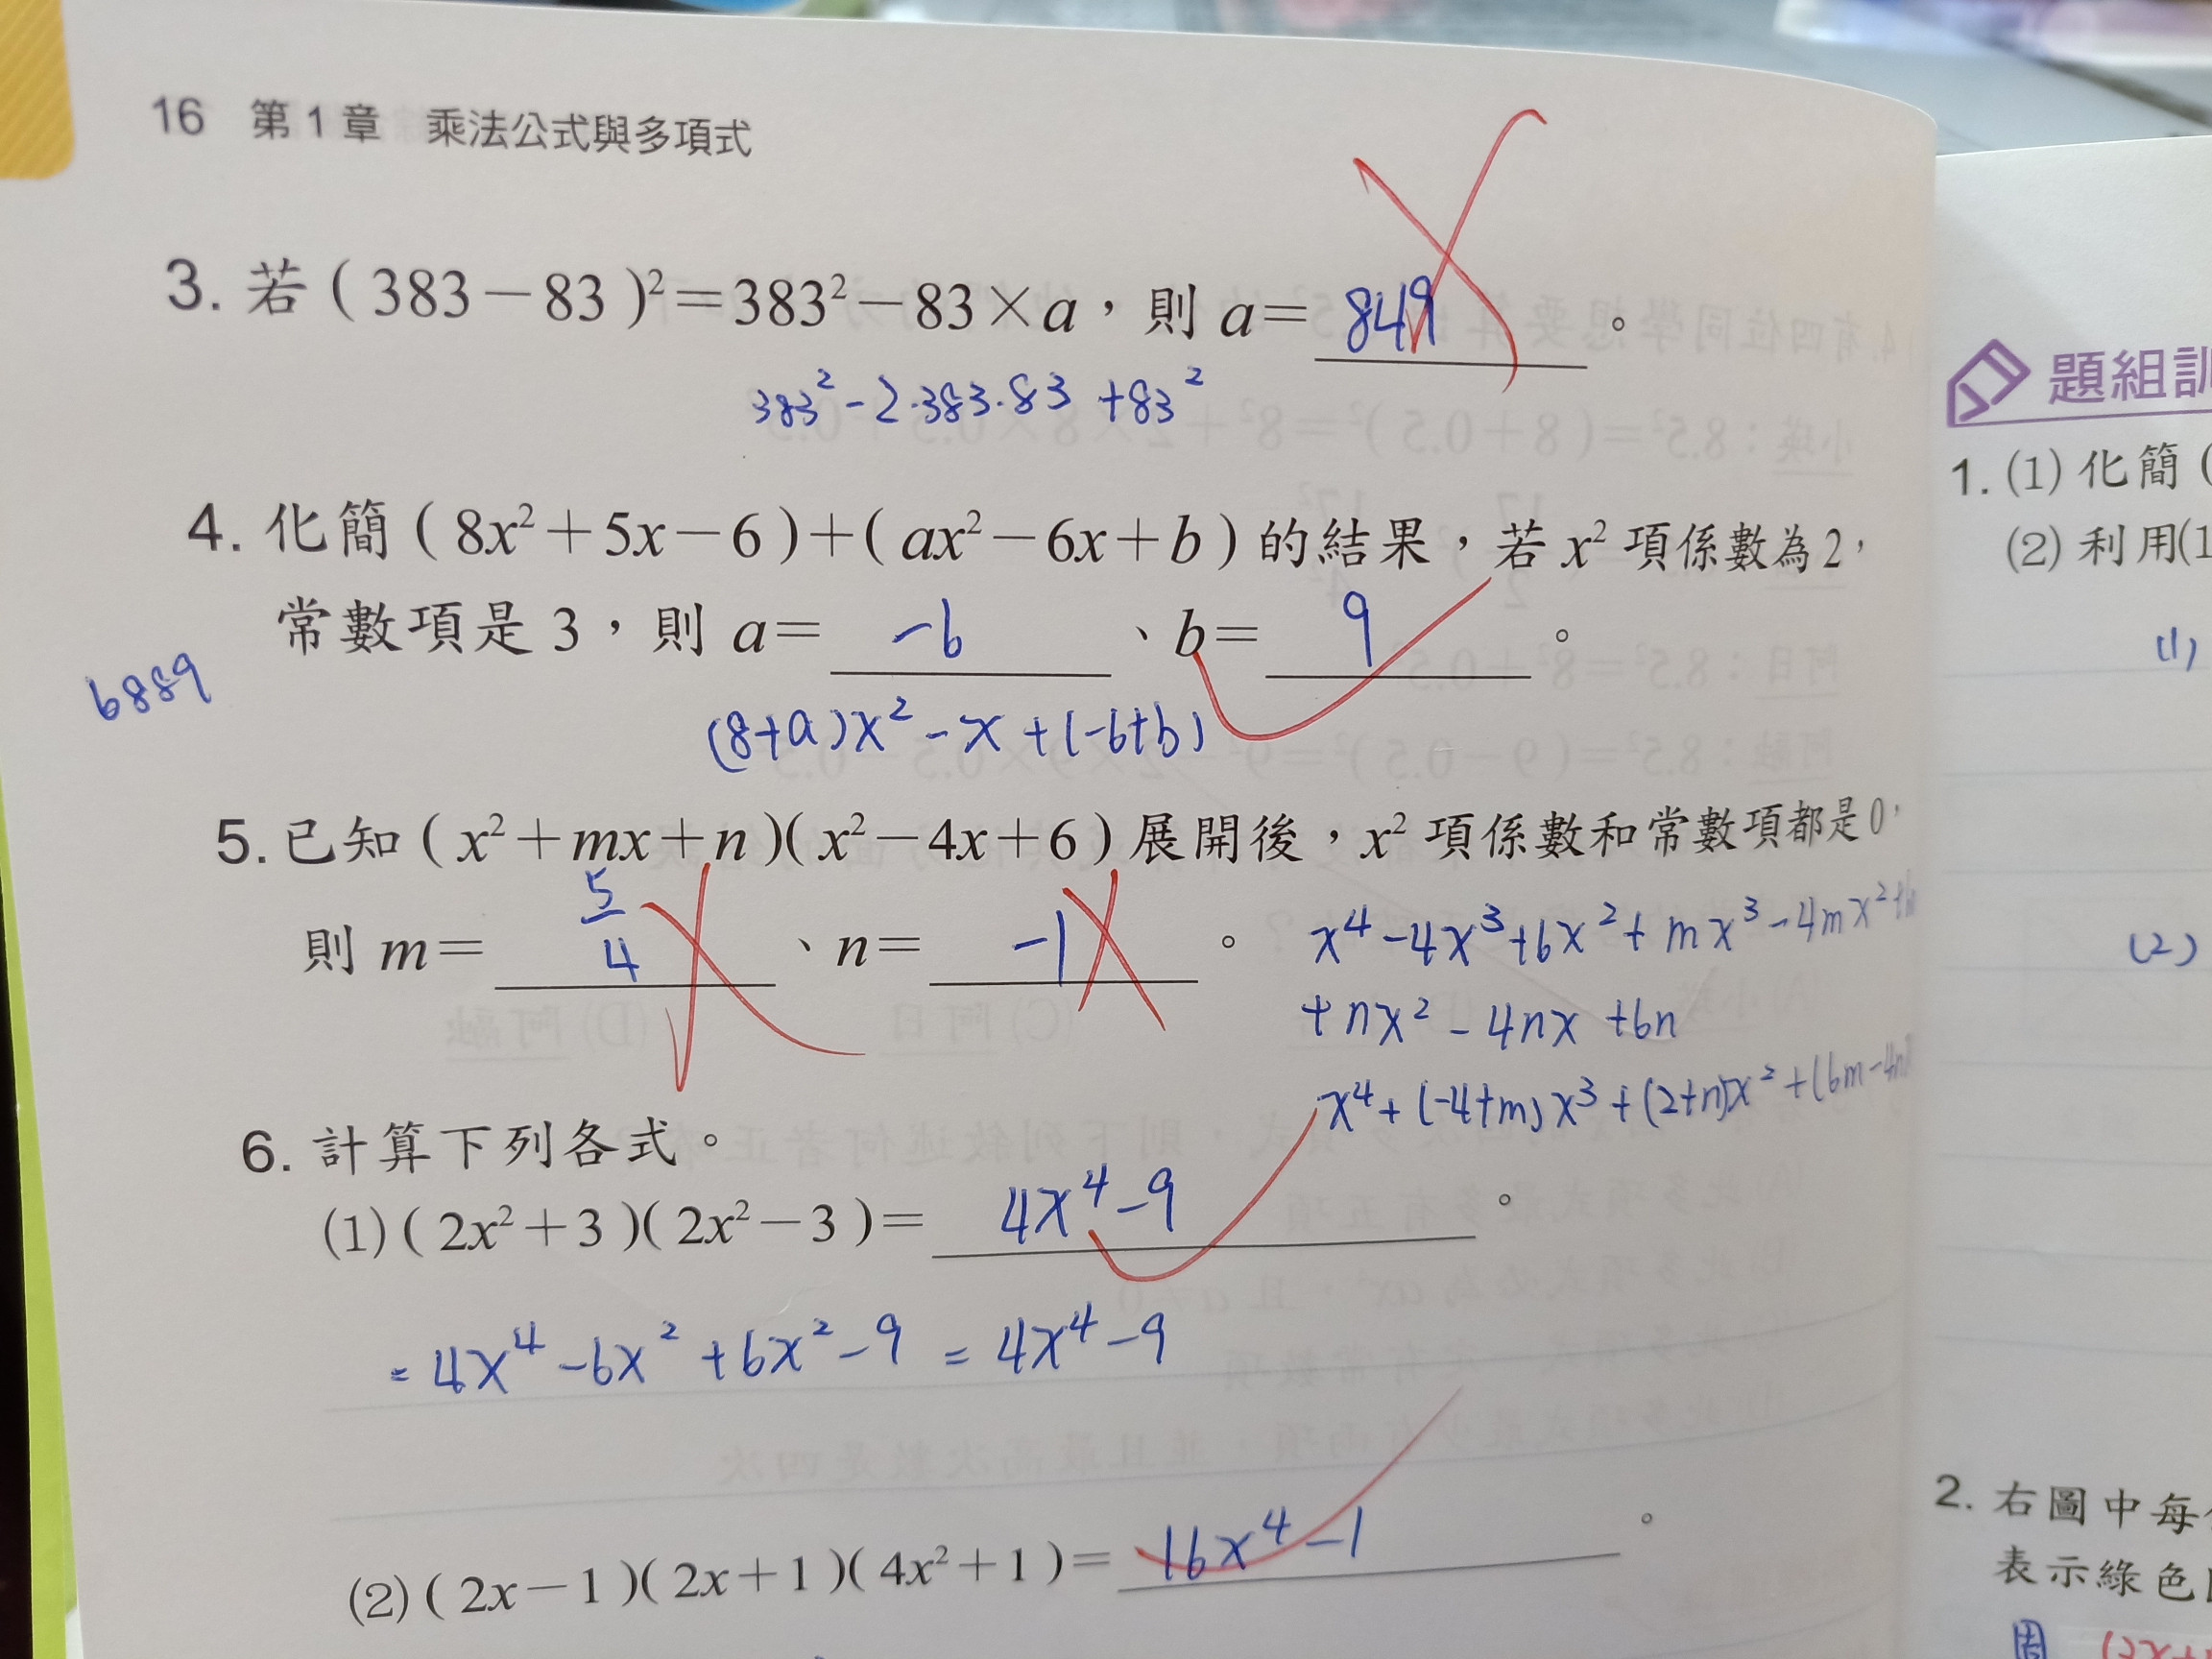 16 第1章 乘法公式與多項式
3. 若(383－83)²＝383²－83×a，則a＝849。
383²-2·383·83+83²
4. 化簡(8x²＋5x－6)＋(ax²－6x＋b)的結果，若x²項係數為2，
常數項是3，則a＝-6、b＝9。
6889
(8+a)x²-x+(-6+b)
5. 已知(x²＋mx＋n)(x²－4x＋6)展開後，x²項係數和常數項都是0，
則m＝5/4、n＝-1。
x⁴-4x³+6x²+mx³-4mx²+
+nx²-4nx+6n
x⁴+(-4+m)x³+(2+n)x²+(6m-4n)
6. 計算下列各式。
(1)(2x²＋3)(2x²－3)＝4x⁴-9。
=4x⁴-6x²+6x²-9=4x⁴-9
(2)(2x－1)(2x＋1)(4x²＋1)＝16x⁴-1。
題組訓
1. (1)化簡(
(2)利用(1
(1)
(2)
2. 右圖中每
表示綠色
周